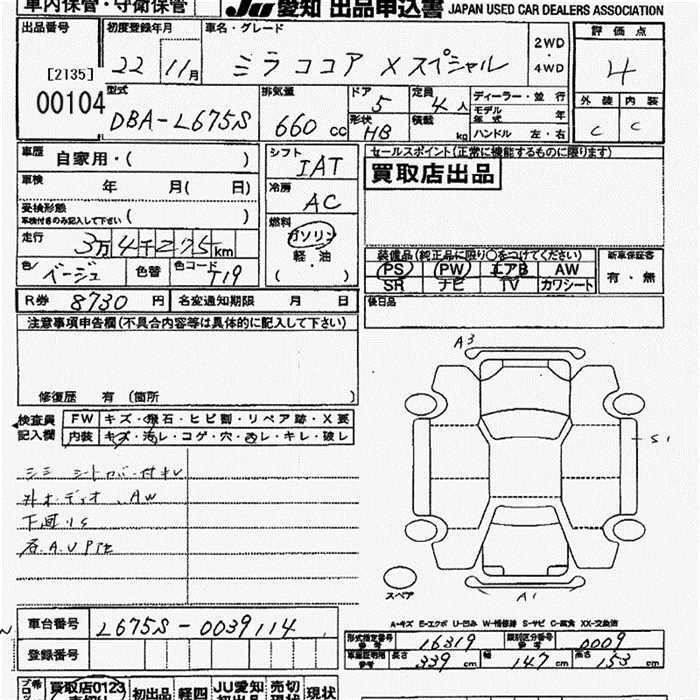 車内保管・守衛保管
JU愛知 出品申込書 JAPAN USED CAR DEALERS ASSOCIATION
出品番号 初度登録年月 車名・グレード 2WD・4WD 評価点
[2135] 22 11月 ミラココア X スペシャル 4
00104
型式 DBA-L675S 排気量 660 cc ドア 5 定員 4人 ディーラー・並行 外装 内装
形状 HB 積載 kg モデル年式 年 C C
ハンドル 左・右
車歴 自家用・( )
シフト IAT
セールスポイント(正常に機能するものに限ります)
買取店出品
車検 年 月( 日)
冷房 AC
受検形態 車検付きのみ記入して下さい ( )
燃料 ガソリン 軽・油 ・( )
走行 3万4千275km
色 ベージュ 色替 色コード T19
装備品(純正品に限り○をつけてください) 新車保証書
PS PW エアB AW 有・無
SR ナビ TV カワシート
R券 8730円 名変通知期限 月 日
後日品
注意事項申告欄(不具合内容等は具体的に記入して下さい)
修復歴 有 (箇所 )
検査員記入欄 FW キズ・飛石・ヒビ割・リペア跡・X要
内装 キズ・汚レ・コゲ・穴・凸レ・キレ・破レ
A3
S1
下廻りS
スペア
A1
A-キズ E-エクボ U-凹み W-補修跡 S-サビ C-腐食 XX-交換済
車台番号 L675S-0039114
形式指定番号 参考 16319 類別区分番号 参考 0009
登録番号
車庫証明用 参考 長さ 339cm 幅 147cm 高さ 153cm
買取店0123 初出品 軽四 JU愛知 売切 現状